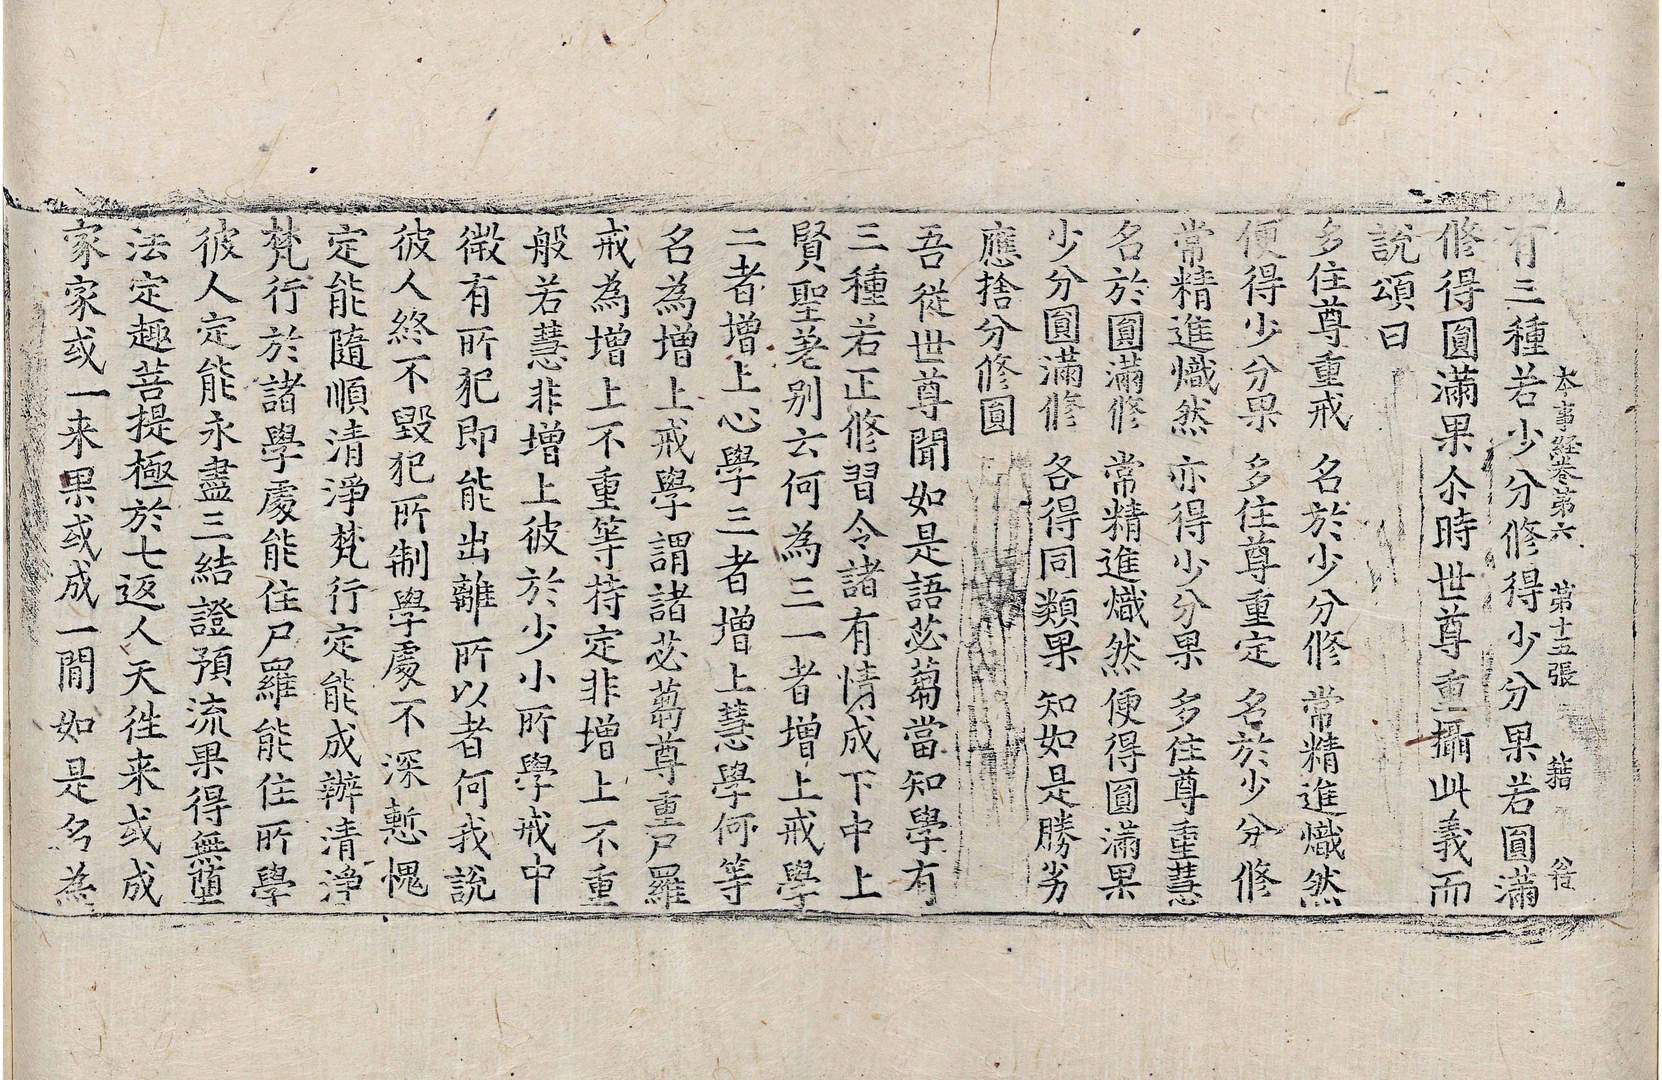 本事経巻第六 第十五張 籍
有三種若少分修得少分果若圓滿
修得圓滿果尒時世尊重攝此義而
說頌曰
多住尊重戒 名於少分修 常精進熾然
便得少分果 多住尊重定 名於少分修
常精進熾然 亦得少分果 多住尊重慧
名於圓滿修 常精進熾然 便得圓滿果
少分圓滿修 各得同類果 知如是勝劣
應捨分修圓
吾從世尊聞如是語苾蒭當知學有
三種若正修習令諸有情成下中上
賢聖差别云何為三一者增上戒學
二者增上心學三者增上慧學何等
名為增上戒學謂諸苾蒭尊重尸羅
戒為增上不重等持定非增上不重
般若慧非增上彼於少小所學戒中
微有所犯即能出離所以者何我說
彼人終不毀犯所制學處不深慙愧
定能隨順清淨梵行定能成辦清淨
梵行於諸學處能住尸羅能住所學
彼人定能永盡三結證預流果得無墮
法定趣菩提極於七返人天徃来或成
家家或一来果或成一間如是名為